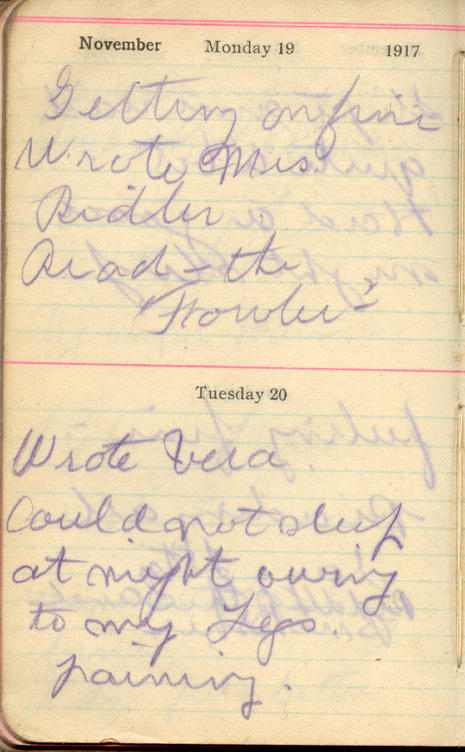 November Monday 19 1917
Getting on fine
Wrote Mrs.
Ridler.
Read - the
Tuesday 20
Wrote Vera.
Could not sleep
at night owing
to my Legs.
paining.